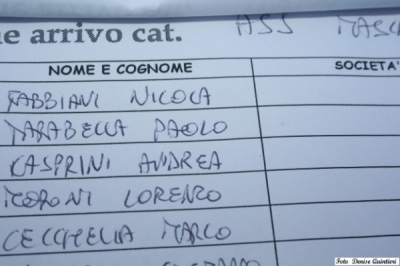 ne arrivo cat. ASS MASC
NOME E COGNOME SOCIETA'
FABBIANI NICOLA
TARABELLA PAOLO
CASPRINI ANDREA
MORONI LORENZO
CECCHELLA MARCO
Foto Denise Quintieri